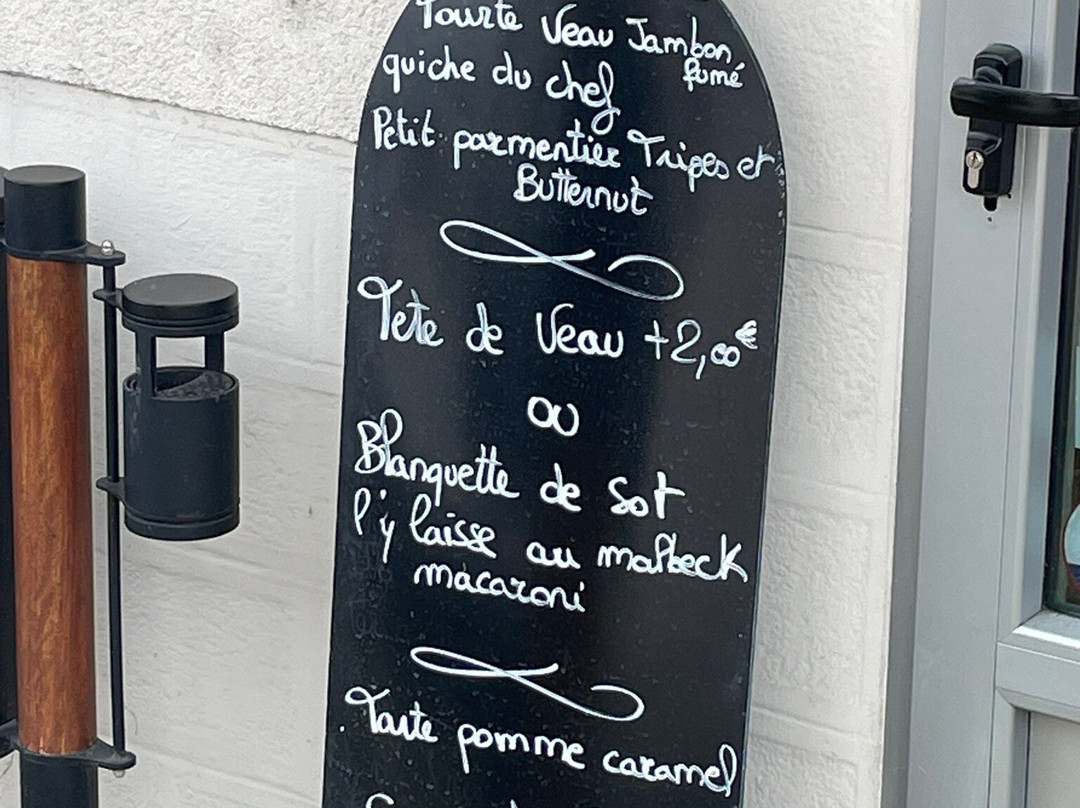 Tourte Veau Jambon
fumé
quiche du chef
Petit parmentier Tripes et
Butternut
Tete de Veau +2,00€
ou
Blanquette de Sot
l'y laisse au malbeck
macaroni
. Tarte pomme caramel